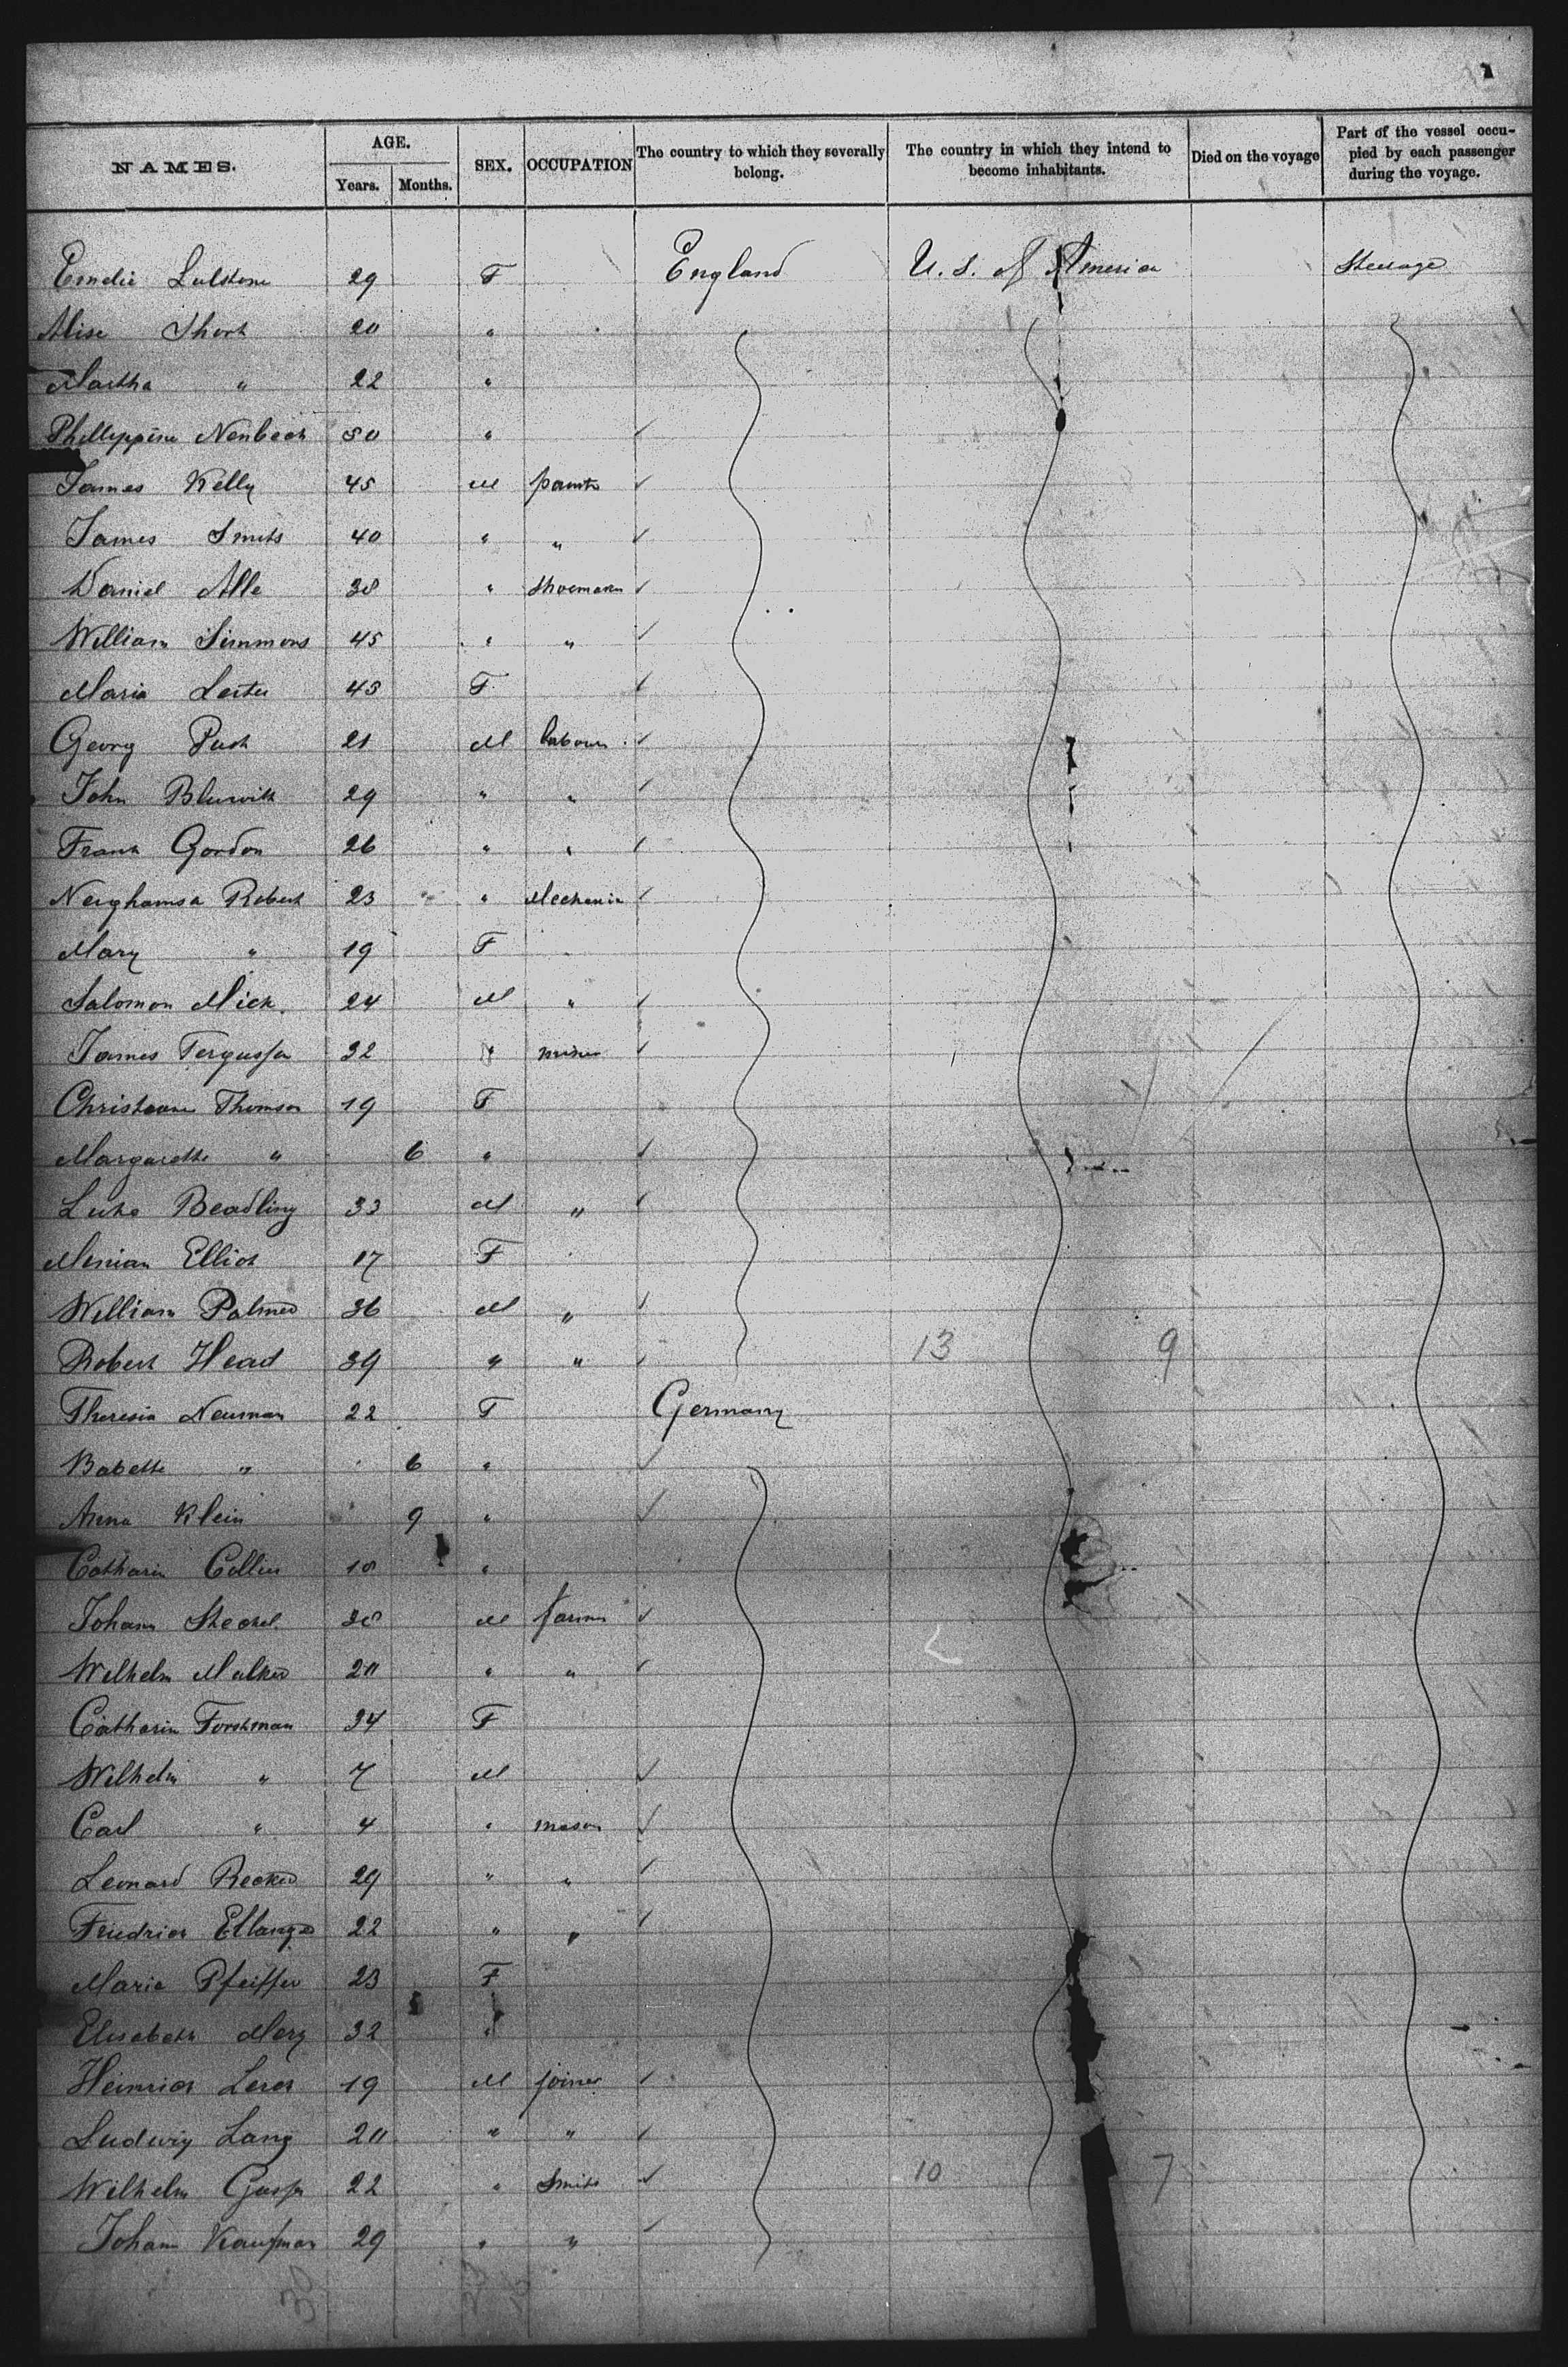 NAMES. AGE. SEX. OCCUPATION The country to which they severally belong. The country in which they intend to become inhabitants. Died on the voyage Part of the vessel occupied by each passenger during the voyage.
Years. Months.
Emelie 29 F England U. S. of America Steerage
Alise Short 20 "
Martha " 22 "
Phillippine Nenbech 50 "
James Kelly 45 M painter
James Smith 40 " "
Daniel Alle 38 " Shoemaker
William Simmons 45 " "
Maria Lester 45 F
Georg Push 21 M labourer
John 29 " "
Frank Gordon 26 " "
Robert 23 " Mechanic
Mary " 19 F
Salomon Mick 24 M "
James Fergusson 32 " miner
Christeane Thomson 19 F
Margarethe " 6 "
Luke Beadling 33 M "
Elliot 17 F
William Palmer 36 M "
Robert Head 39 " " 13 9
Theresia Neuman 22 F Germany
Babette " 6 "
Anna Klein 9 "
Catharin Collin 18 "
Johann Steckel 38 M farmer
Wilhelm Malker 20 " "
Catharin Forstman 34 F
Wilhelm " 7 M
Carl " 4 " mason
Leonard Recker 29 " "
Friedrich Ellanger 22 " "
Marie Pfeiffer 23 F
Elisabeth Merz 32 "
Heinrich Lerch 19 M joiner
Ludwig Lang 20 " "
Wilhelm 22 " Smith 10 7
Johann Kaufman 29 " "